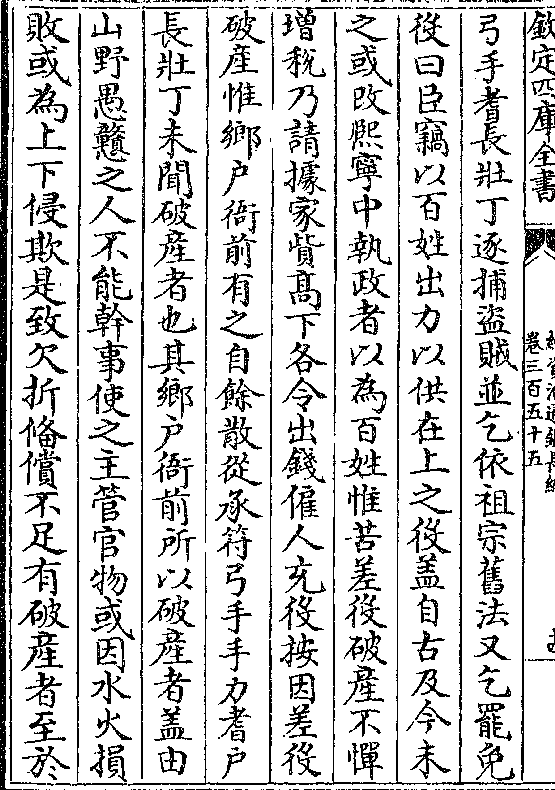 欽定四庫全書
卷三百五十五
弓手耆長壯丁逐捕盜賊並乞依祖宗舊法又乞罷免
役曰臣竊以百姓出力以供在上之役蓋自古及今未
之或改熙寧中執政者以為百姓惟苦差役破產不憚
增稅乃請據家貲高下各令出錢僱人充役按因差役
破產惟鄉户衙前有之自餘散從承符弓手手力耆户
長壯丁未聞破產者也其鄉户衙前所以破產者蓋由
山野愚戇之人不能幹事使之主管官物或因水火損
敗或為上下侵欺是致欠折備償不足有破產者至於